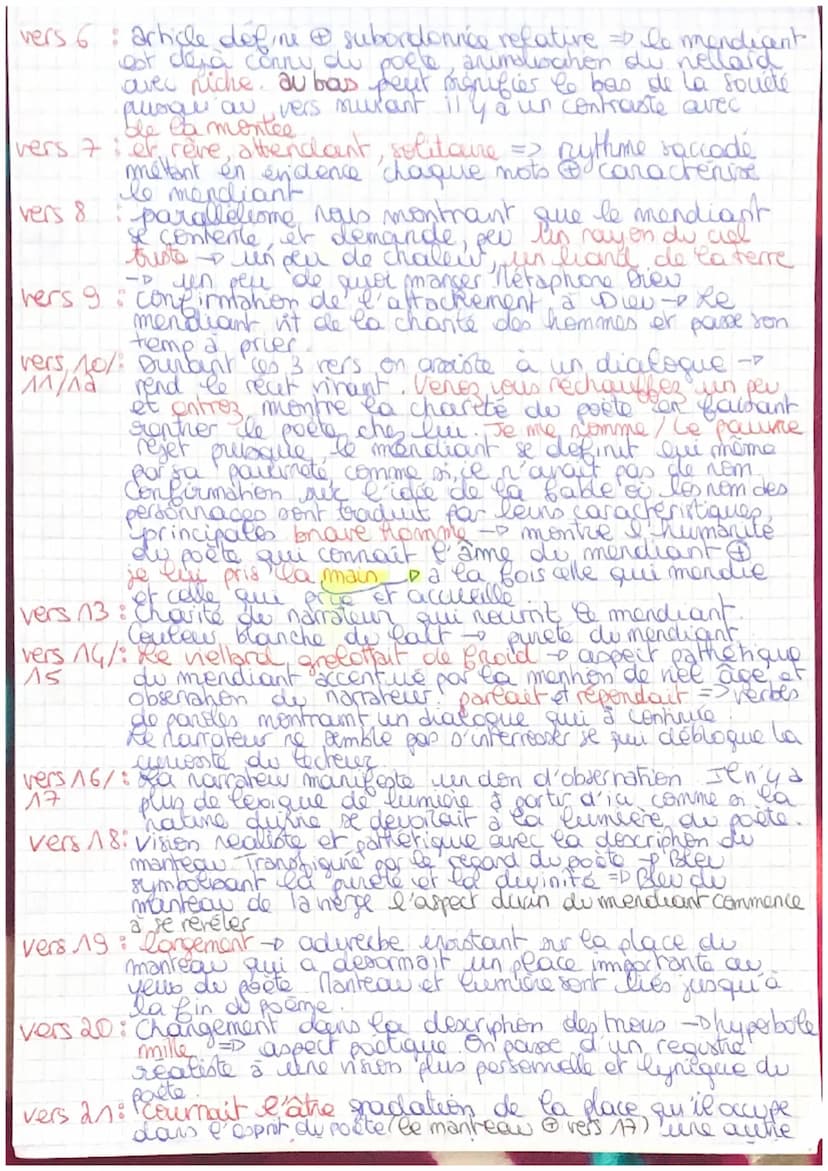 vers 6 : article défini ⊕ subordonnée relative => le mendiant
est déjà connu du poète, animalisation du vieillard
avec niche. au bas peut signifier le bas de la société
puisqu'au vers suivant il y a un contraste avec
de la montée
vers 7 : et rêve, attendant, solitaire => rythme saccadé
mettant en évidence chaque mots ⊕ caractérise
le mendiant
vers 8 : parallélisme nous montrant que le mendiant
se contente, et demande, peu un rayon du ciel
triste → un peu de chaleur, un liard de la terre
→ un peu de quoi manger Métaphore Dieu
vers 9 : confirmation de l'attachement à Dieu → Le
mendiant vit de la charité des hommes et passe son
temp à prier
vers 10/: Durant ces 3 vers on assiste à un dialogue →
11/12 rend le récit vivant. Venez vous réchauffez un peu
et entrez montre la charité du poète en faisant
rentrer le poète chez lui. Je me nomme / Le pauvre
rejet puisque le mendiant se définit lui même
par sa pauvreté, comme si, il n'avait pas de nom
Confirmation sur l'idée de la fable où les nom des
personnages sont traduit par leurs caractéristiques
principales brave homme → montre l'humanité
du poète qui connait l'âme du mendiant ⊕
je lui pris la main → à la fois celle qui mendie
et celle qui prie et accueille.
vers 13 : charité du narrateur qui nourrit le mendiant.
Couleur blanche du lait → pureté du mendiant
vers 14/: Le viellard grelottait de froid → aspect pathétique
15 du mendiant accentué par la mention de vieil âge et
observation du narrateur. parlait et répondait => verbes
de paroles montrant un dialogue qui à continué.
Le narrateur ne semble pas s'interresser se qui débloque la
curiosité du lecteur.
vers 16/: La narrateur manifeste un don d'observation. Il n'y a
17 plus de lexique de lumière à partir d'ici comme si la
nature divine se dévoilait à la lumière du poète.
vers 18: Vision réaliste et pathétique avec la description du
manteau. Transfiguré par le regard du poète → Bleu
symbolisant la pureté et la divinité => Bleu du
manteau de la vierge l'aspect divin du mendiant commence
à se révéler
vers 19 : largement → adverbe insistant sur la place du
manteau qui a désormait un place importante au
yeux du poète. Manteau et lumière sont liés jusqu'à
la fin du poème.
vers 20: Changement dans la description des trous → hyperbole
mille => aspect poétique. On passe d'un registre
réaliste à une vision plus personnelle et lyrique du
poète.
vers 21: couvrait l'âtre gradation de la place qu'il occupe
dans l'esprit du poète (le manteau ⊕ vers 17) une autre